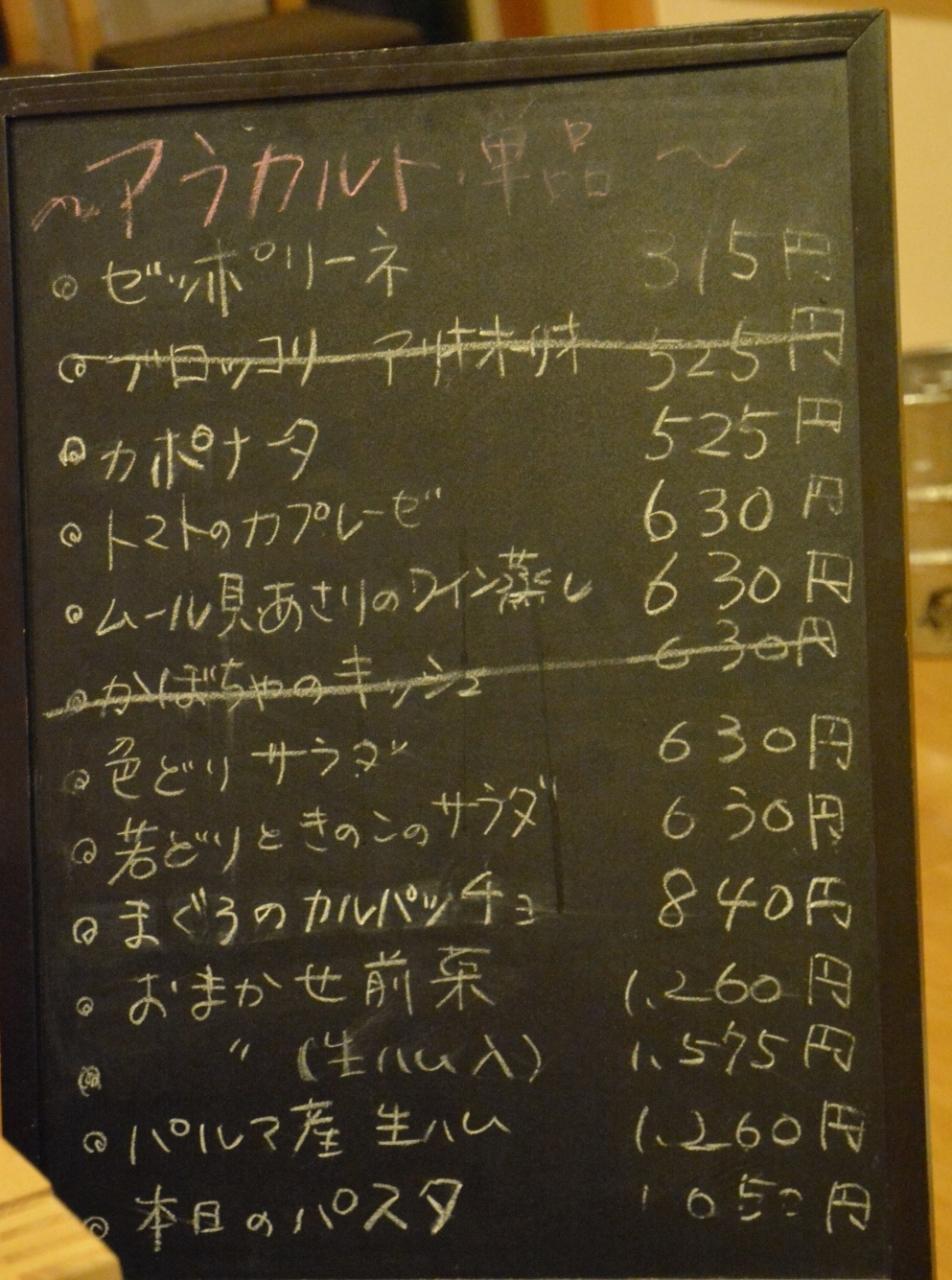 ～アラカルト・単品～
ゼッポリーネ 315円
ブロッコリーアーリオオーリオ 525円
カポナータ 525円
トマトのカプレーゼ 630円
ムール貝あさりのワイン蒸し 630円
かぼちゃのキッシュ 630円
色どりサラダ 630円
若どりときのこのサラダ 630円
まぐろのカルパッチョ 840円
おまかせ前菜 1,260円
〃 (生ハム入) 1,575円
パルマ産 生ハム 1,260円
本日のパスタ 1050円